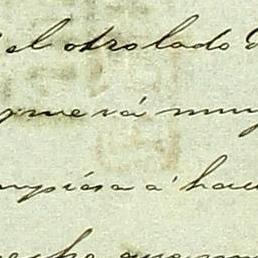 el otro lado d
que vá muy
mpiésa a' hac
echo que